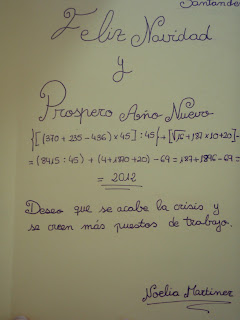 Santander
Feliz Navidad
y
Prospero Año Nuevo
{[(370 + 235 - 436) × 45] : 45} + [√16 + 187 × 10 + 20] -
= (8415 : 45) + (4 + 1870 + 20) - 69 = 187 + 1894 - 69 =
= 2012
Deseo que se acabe la crisis y
se creen más puestos de trabajo.
Noelia Martinez